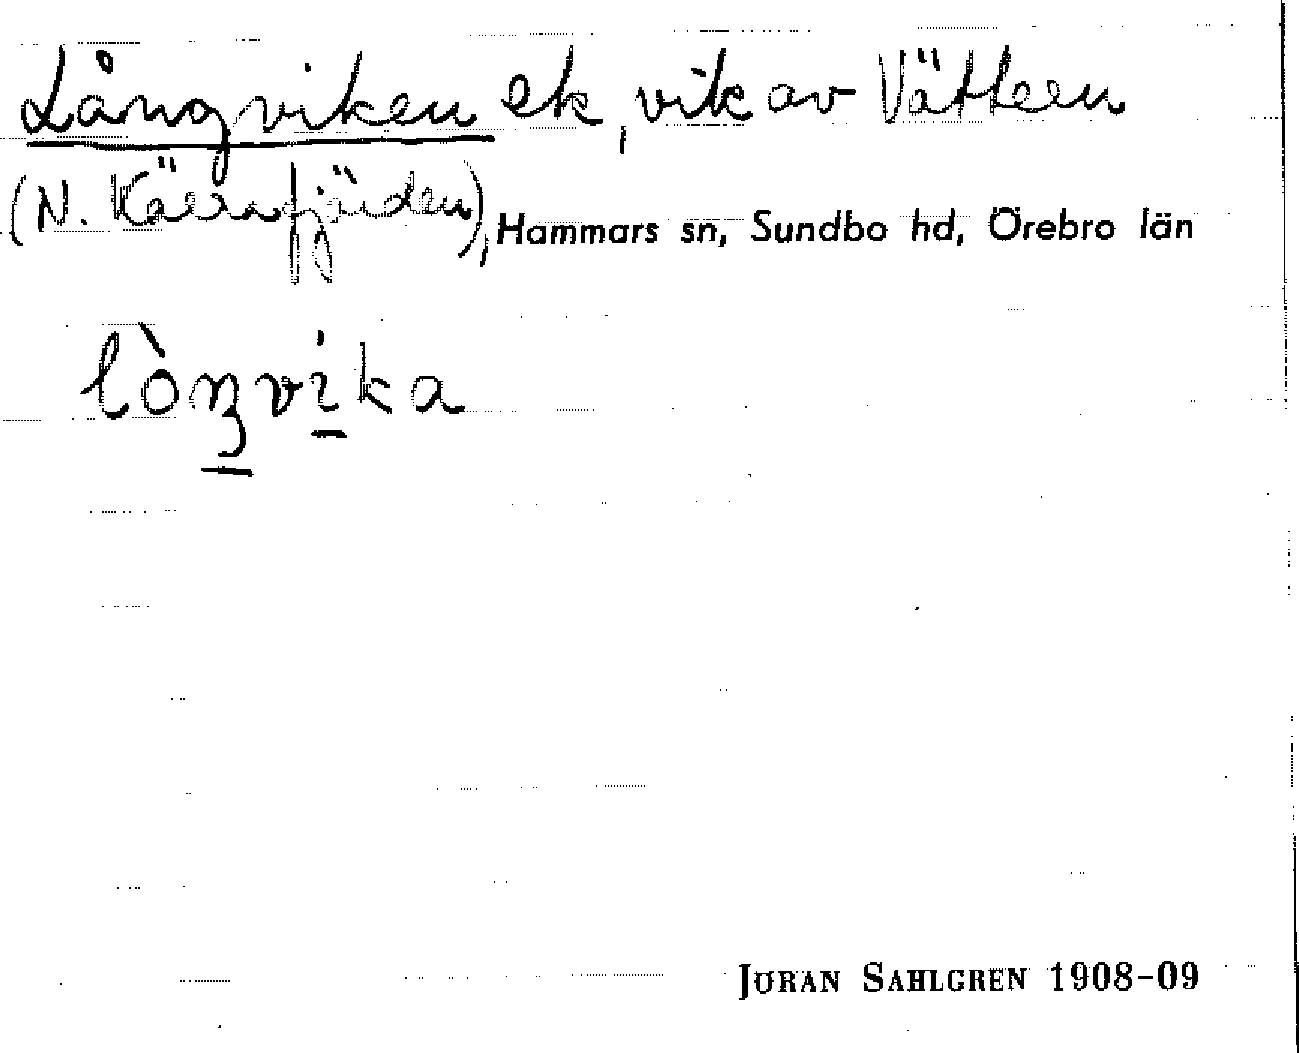 Långviken ek, vik av Vättern
(N. Kärrafjärden), Hammars sn, Sundbo hd, Örebro län
lòŋvika
JÖRAN SAHLGREN 1908-09